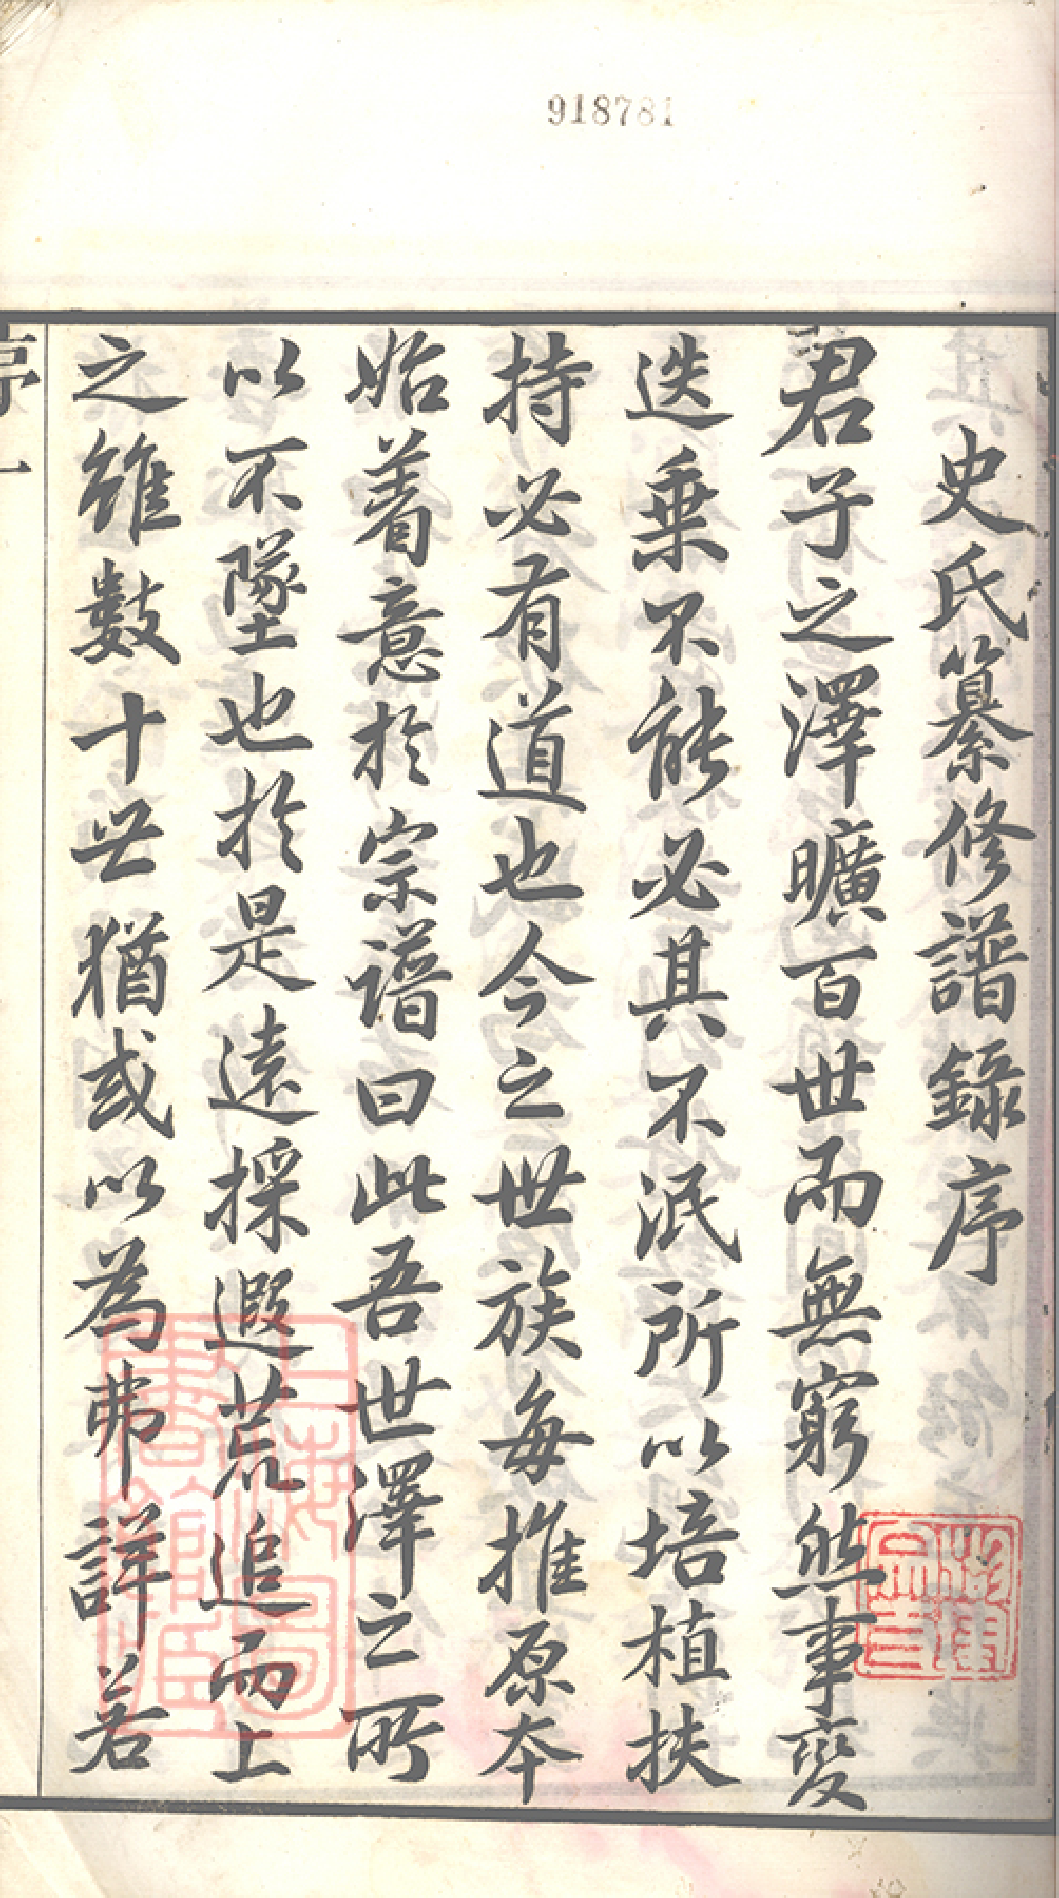 918781
史氏纂修譜錄序
君子之澤曠百世而無窮然事變
迭乗不能必其不泯所以培植扶
持必有道也今之世族每推原本
始着意於宗譜曰此吾世澤之所
以不墜也於是遠採遐荒追而上
之雖數十世猶或以為弗詳若
序一
上海圖書館藏